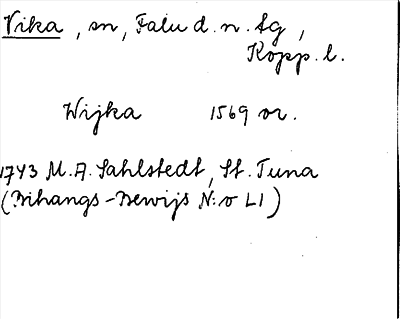 Vika, sn, Falu d. n. tg,
Kopp. l.
Wijka 1569 or.
1743 M. A. Sahlstedt, St. Tuna
(Bihangs-Bewijs N:o LI)